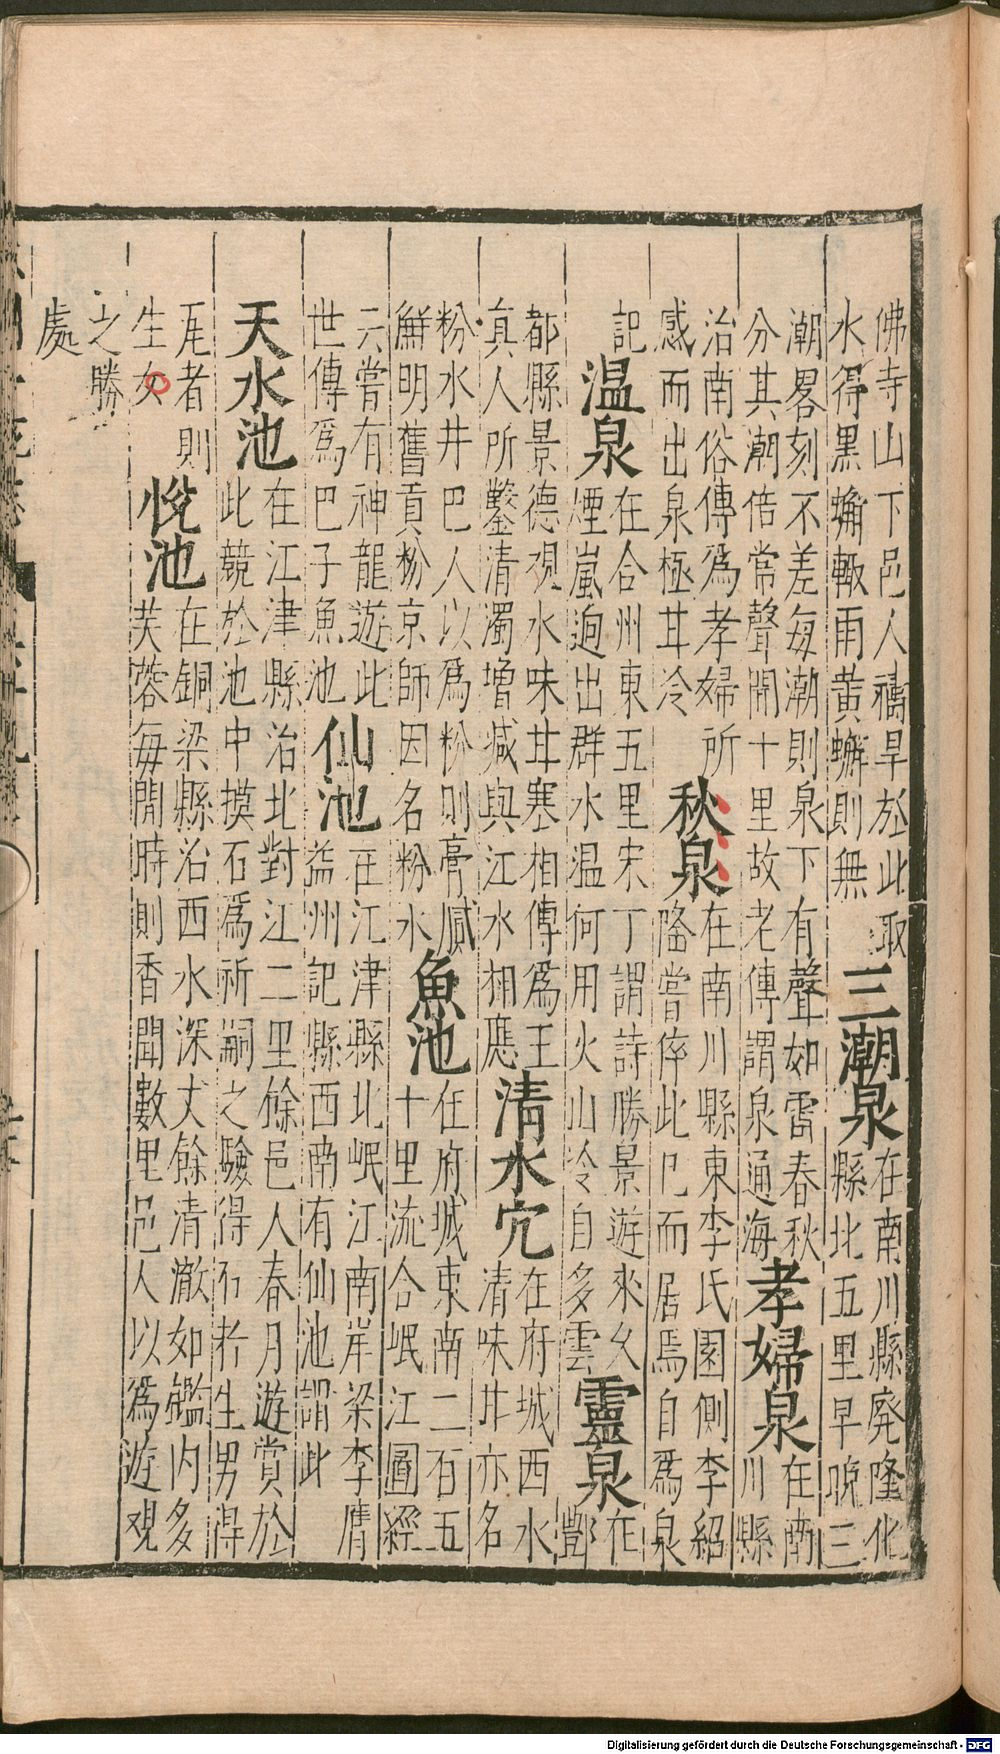 佛寺山下邑人禱旱於此取
水得黑蠏輙雨黄蠏則無
三潮泉
在南川縣廢隆化
縣北五里早晚三
潮畧刻不差每潮則泉下有聲如雷春秋
分其潮倍常聲聞十里故老傳謂泉通海
孝婦泉
在南
川縣
治南俗傳爲孝婦所
感而出泉極甘冷
秋泉
在南川縣東李氏園側李紹
隆嘗倅此而居焉自爲泉
記
温泉
在合州東五里宋丁謂詩勝景遊來久
煙嵐迥出群水温何用火山冷自多雲
靈泉
在
酆
都縣景德觀水味甘寒相傳爲王
真人所鑿清濁増减與江水相應
清水穴
在府城西水
清味甘亦名
粉水井巴人以爲粉則膏膩
鮮明舊貢粉京師因名粉水
魚池
在府城東南二百五
十里流合岷江圖經
云嘗有神龍遊此
世傳爲巴子魚池
仙池
在江津縣北岷江南岸梁李膺
益州記縣西南有仙池謂此
天水池
在江津縣治北對江二里餘邑人春月遊賞於
此競於池中摸石爲祈嗣之驗得石者生男得
瓦者則
生女
悅池
在銅梁縣治西水深丈餘清澈如鑑内多
芙蓉每開時則香聞數里邑人以爲遊觀
之勝
處
Digitalisierung gefördert durch die Deutsche Forschungsgemeinschaft - DFG